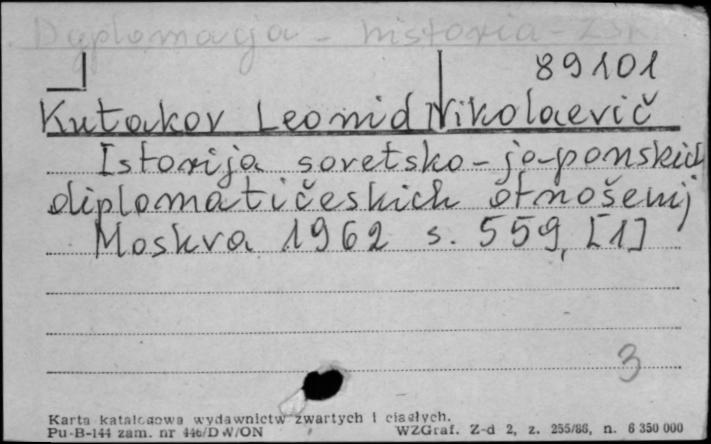 Dyplomacja - historia - ZSRR
89101
Kutakov Leonid Nikolaevič
Istorija sovetsko-japonskich
diplomatičeskich otnošenij
Moskva 1962 s. 559, [1]
3
Karta katalogowa wydawnictw zwartych i ciągłych.
Pu-B-144 zam. nr 446/DW/ON WZGraf. Z-d 2, z. 255/86, n. 6 350 000